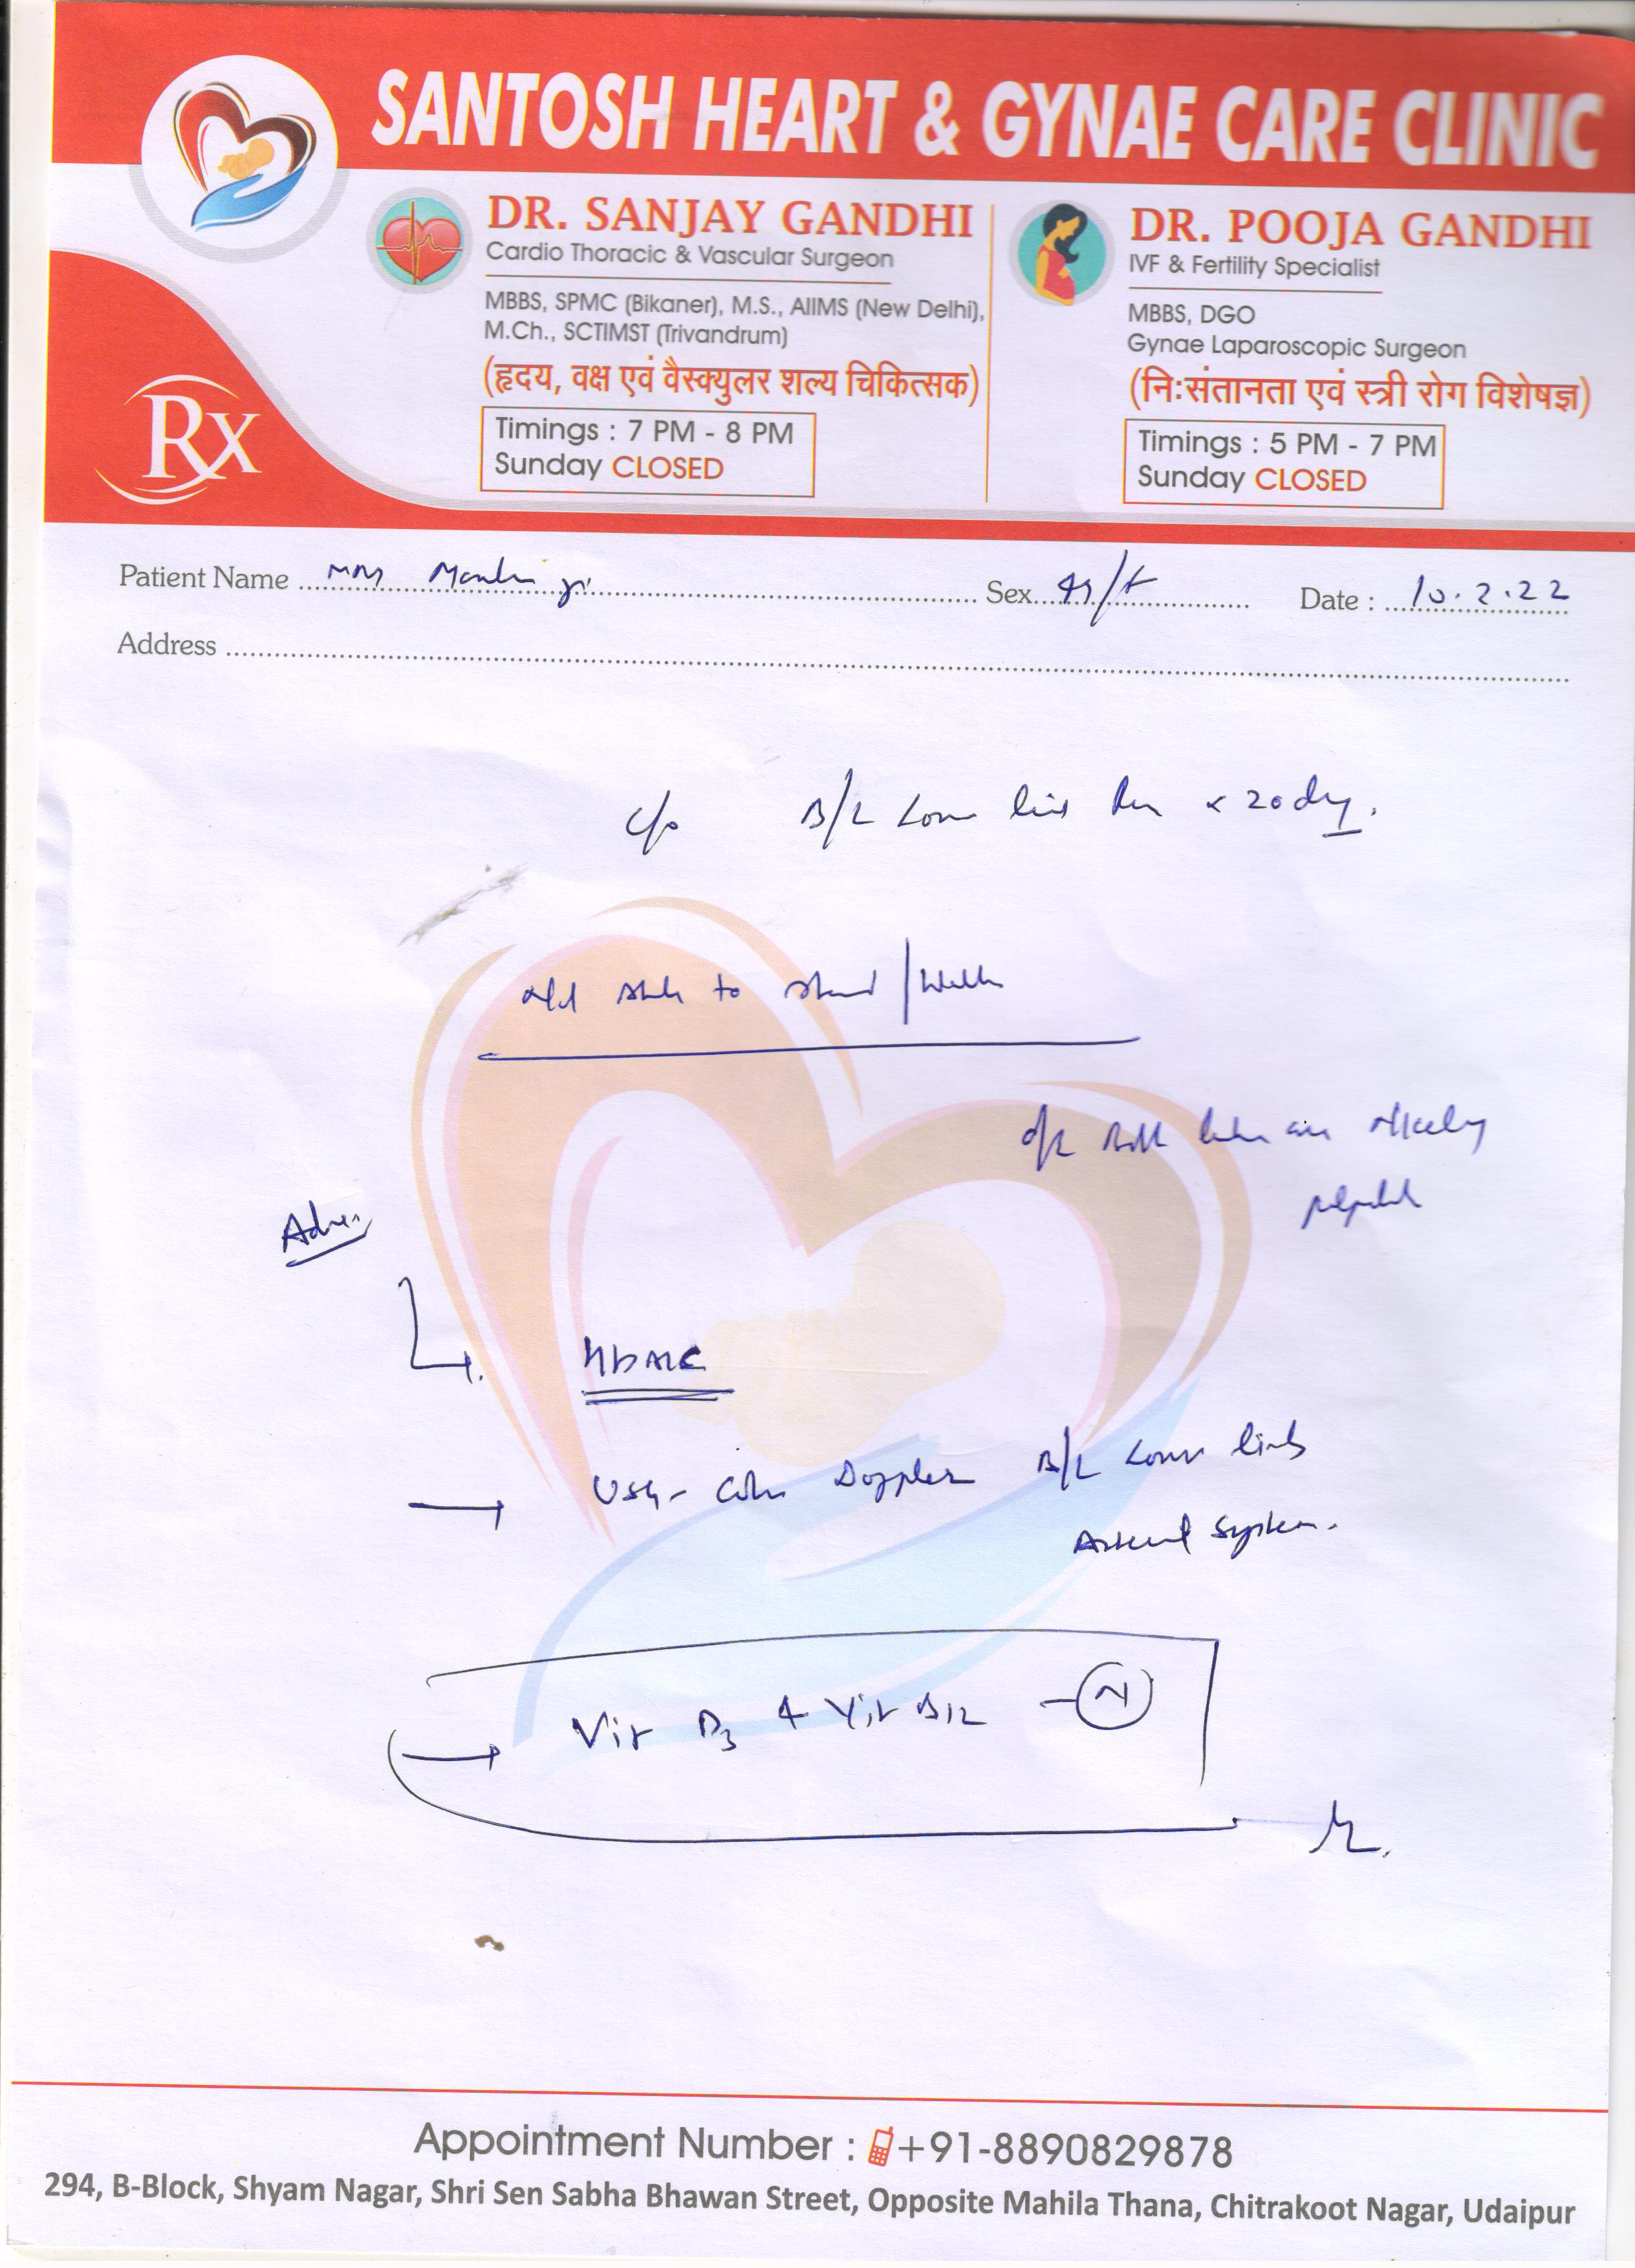 SANTOSH HEART & GYNAE CARE CLINIC
DR. SANJAY GANDHI
Cardio Thoracic & Vascular Surgeon
MBBS, SPMC (Bikaner), M.S., AIIMS (New Delhi),
M.Ch., SCTIMST (Trivandrum)
(हृदय, वक्ष एवं वैस्क्युलर शल्य चिकित्सक)
Timings : 7 PM - 8 PM
Sunday CLOSED
DR. POOJA GANDHI
IVF & Fertility Specialist
MBBS, DGO
Gynae Laparoscopic Surgeon
(नि:संतानता एवं स्त्री रोग विशेषज्ञ)
Timings : 5 PM - 7 PM
Sunday CLOSED
Rx
Patient Name Sex Date : 10.2.22
Address
c/o B/L Lower limb x 20 day.
to stand / Walk
HbA1c
USG - Color Doppler B/L Lower limb
Arterial System.
Vit D3 & Vit B12 - N
Appointment Number : +91-8890829878
294, B-Block, Shyam Nagar, Shri Sen Sabha Bhawan Street, Opposite Mahila Thana, Chitrakoot Nagar, Udaipur